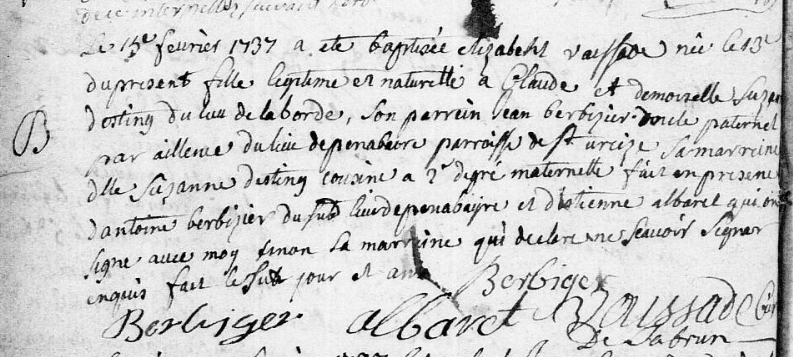 Le 15e fevrier 1737 a ete baptisée elizabeht vaissade née le 13e
du present fille legitime et naturelle a Claude et demoiselle Suzan
destinq du lieu de laborde, son parrein Jean berbizier oncle paternel
par allience du lieu de penabeire parroisse de st urcize sa marreine
dlle Suzanne destinq cousine a 2e degré maternelle fait en presence
dantoine berbizier du sud lieu de penabayre et detienne albaret qui on
signe avec moy sinon la marreine qui declare ne scavoir signer
enquis fait le sud jour et an
Berbiger
Berbiger albaret Vaissade
De Labrun
B